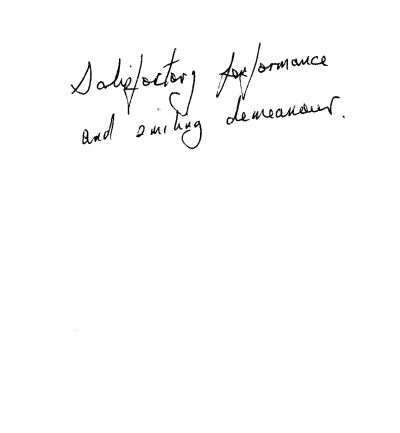 Satisfactory performance
and smiling demeanour.